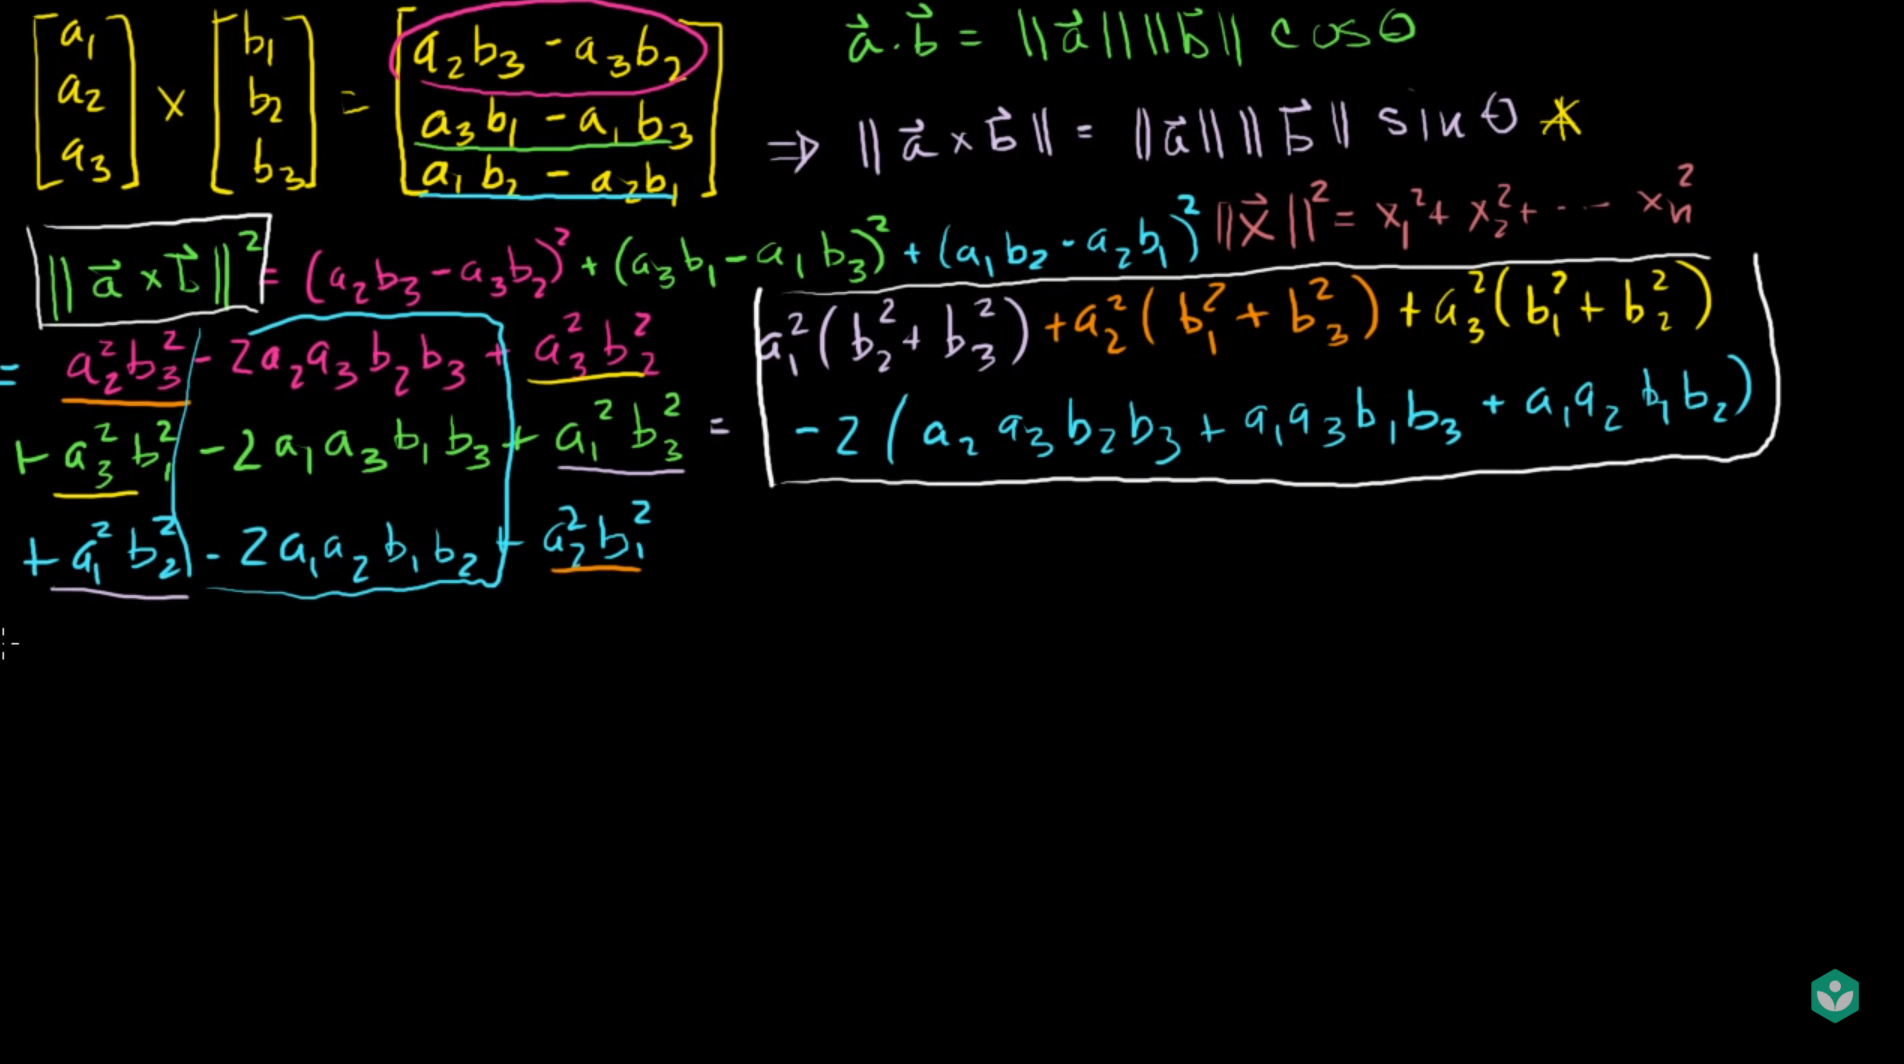 [a₁ a₂ a₃] × [b₁ b₂ b₃] = [a₂b₃ - a₃b₂
a₃b₁ - a₁b₃
a₁b₂ - a₂b₁]
a⃗ · b⃗ = ||a⃗|| ||b⃗|| cos θ
⇒ ||a⃗ × b⃗|| = ||a⃗|| ||b⃗|| sin θ *
||x⃗||² = x₁² + x₂² + ··· xₙ²
||a⃗ × b⃗||² = (a₂b₃ - a₃b₂)² + (a₃b₁ - a₁b₃)² + (a₁b₂ - a₂b₁)²
= a₂²b₃² - 2a₂a₃b₂b₃ + a₃²b₂²
+ a₃²b₁² - 2a₁a₃b₁b₃ + a₁²b₃²
+ a₁²b₂² - 2a₁a₂b₁b₂ + a₂²b₁²
= a₁²(b₂² + b₃²) + a₂²(b₁² + b₃²) + a₃²(b₁² + b₂²)
- 2(a₂a₃b₂b₃ + a₁a₃b₁b₃ + a₁a₂b₁b₂)